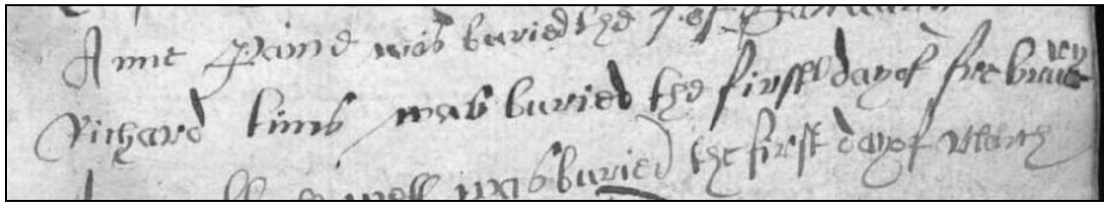 Anne Paine was buried the 7. of January
Richard tims was buried the first day of februarery
well was buried the first day of March